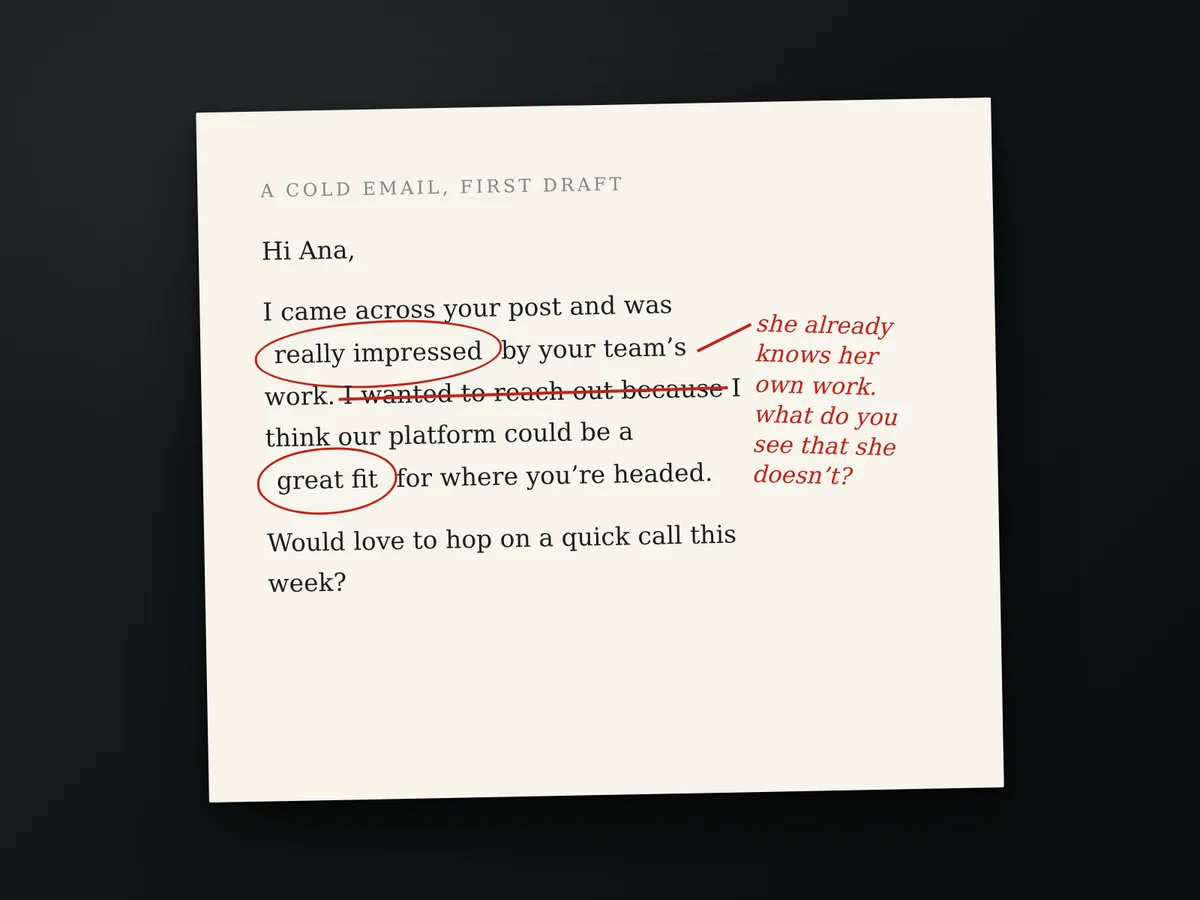 A COLD EMAIL, FIRST DRAFT
Hi Ana,
I came across your post and was
really impressed by your team’s
work. I wanted to reach out because I
think our platform could be a
great fit for where you’re headed.
Would love to hop on a quick call this
week?
she already
knows her
own work.
what do you
see that she
doesn’t?